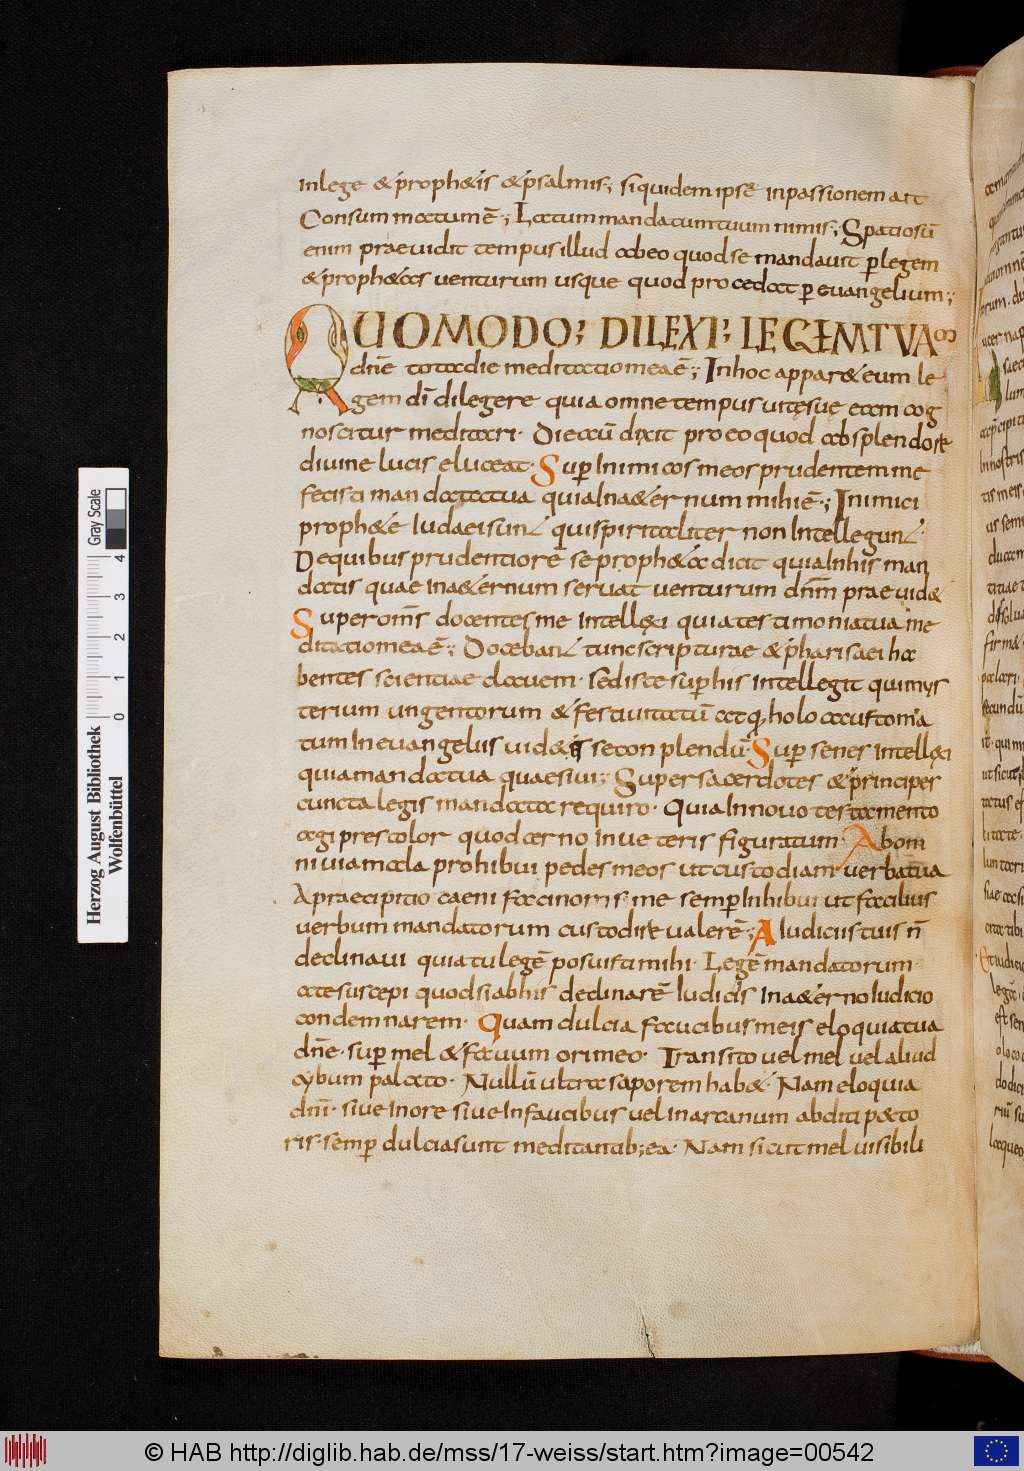 inlege & proph&is & psalmis; siquidem ipsē inpassionem att
Consummatumē; Latum mandatumtuum nimis; Spatiosū
enim praevidit tempus illud abeo quod se mandavit p̱ legem
& proph&as venturum usque quod procedat p̱ evangelium;
QUOMODO; DILEXI; LEGEM TUA
dnē totadie meditatiomeaē; Inhoc appar& eum le
gem dī dilegere quia omne tempus uitę suę etcm cog
noscitur meditari. Die acū dixit pro eo quod ab splendore
divine lucis eluceat. Sup̱ Inimicos meos prudentem me
fecisti mandatatua quia Ina&ernum mihiē; Inimici
proph&e Iudaei sunt qui spiritaliter non Intellegunt.
De quibus prudentiorē se proph&a dicit quia Inhis man
datis quae Ina&ernum servat venturum dnm praevid&
Super oms docentes me Intellęxi quia testimonia tua me
ditatiomeaē; Doceban tunc scripturae & pharisaei ha
bentes scientiae clavem. sed iste sup̱ his Intellegit qui mys
terium ungentorum & festivitatū atq; holocaustoma
tum In evangeliis vid& secomplendū. Sup̱ senes Intellęxi
quia mandatatua quaesivi; Super sacerdotes & principes
cuncta legis mandata requiro. Quia Innovo testamento
agi prestolor quod cerno Inveteris figuratum. Abom
ni via mala prohibui pedes meos ut custodiam verbatua
A praecipitio caeni facinoris me semp̱ Inhibui ut facilius
verbum mandatorum custodire valerē; A Iudiciis tuis n̄
declinavi quia tu legē posuisti mihi. Legē mandatorum
ate suscepi quod si abhis declinarē Iudiciis Ina&erno Iudicio
condemnarem. Quam dulcia faucibus meis eloquia tua
dnē. sup̱ mel & favum ori meo. Transito vel mel vel aliud
cybum palato. Nullū ultra saporem hab&. Nam eloquia
dnī. sive Inore sive Infaucibus vel In arcanum abditi pecto
ris. semp̱ dulcia sunt meditantib; ea. Nam sicut mel visibili
Herzog August Bibliothek
Wolfenbüttel
Gray Scale
0 1 2 3 4
© HAB http://diglib.hab.de/mss/17-weiss/start.htm?image=00542